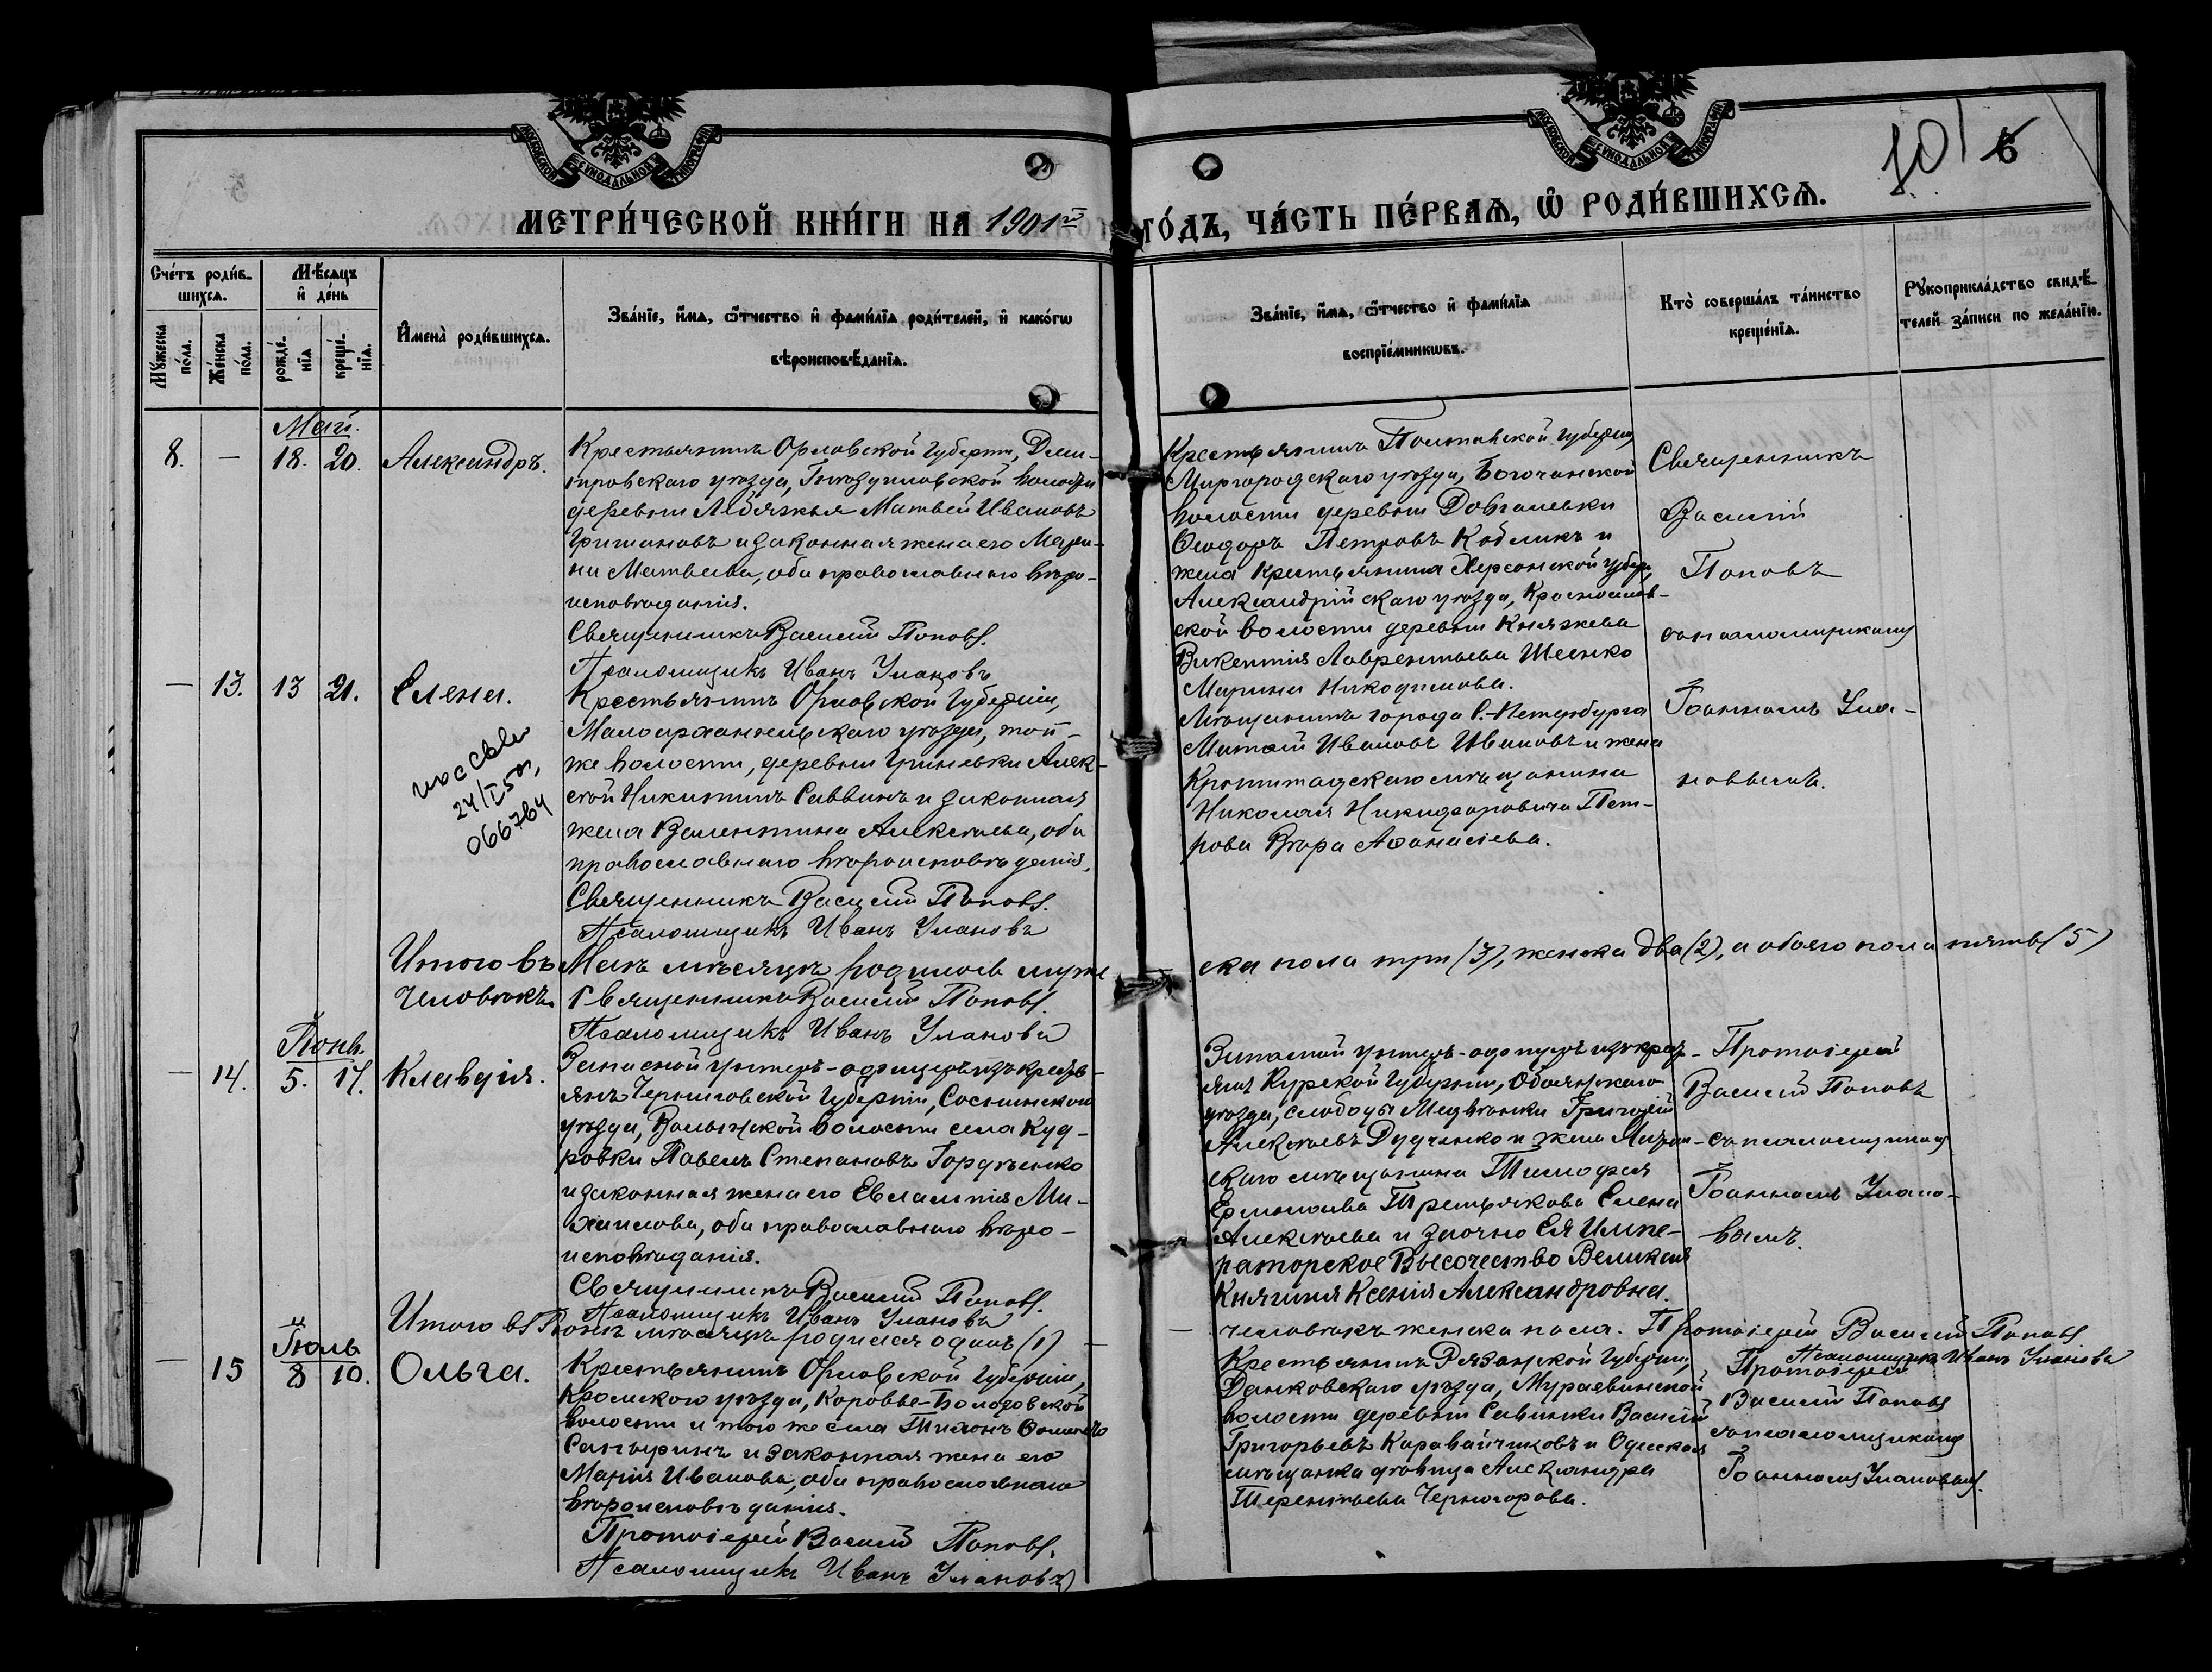 МОСКОВСКОЙ СѴНОДАЛЬНОЙ ТИПОГРАФІИ
МОСКОВСКОЙ СѴНОДАЛЬНОЙ ТИПОГРАФІИ
101 6
МЕТРИ́ЧЕСКОЙ КНИ́ГИ НА 1901й ГО́ДЪ, ЧА́СТЬ ПЕ́РВАѦ, Ѡ҆ РОДИ́ВШИХСѦ.
Сче́тъ роди́в-
шихсѧ.
Мꙋ́жеска по́ла.
Же́нска по́ла.
Мѣ́сѧцъ
и҆ де́нь
рожде́-
нїѧ
креще́-
нїѧ.
И҆мена̀ роди́вшихсѧ.
Зва́нїе, и҆́мѧ, ѻ҆́тчество и҆ фами́лїѧ роди́телей, и҆ како́гѡ
вѣроисповѣ́данїѧ.
Зва́нїе, и҆́мѧ, ѻ҆́тчество и҆ фами́лїѧ
воспрїе́мникѡвъ.
Кто̀ соверша́лъ та́инство
креще́нїѧ.
Рꙋкоприкла́дство свидѣ́-
телей за́писи по жела́нїю.
Май.
8. — 18. 20. Александръ.
Крестьянинъ Орловской губерніи, Дми-
тровскаго уѣзда, Гнѣздиловской волости
деревни Лебяжья Матвей Ивановъ
Гришановъ и законная жена его Мари-
на Матвеева, оба православнаго вѣро-
исповѣданія.
Священникъ Василій Поповъ.
Псаломщикъ Иванъ Улановъ
Крестьянинъ Полтавской губерніи,
Миргородскаго уѣзда, Богочанской
волости деревни Довгалевки
Ѳеодоръ Петровъ Кобликъ и
жена крестьянина Херсонской губер.,
Александрійскаго уѣзда, Красносель-
ской волости деревни Княжева
Викентія Лаврентьева Шеенко
Марина Никодимова.
Священникъ
Василій
Поповъ
съ псаломщикомъ
Іоанномъ Ула-
новымъ.
— 13. 13 21. Елена.
24/I 50г,
066764
Крестьянинъ Орловской губерніи,
Малоархангельскаго уѣзда, той-
же волости, деревни Гриневки Алек-
сѣй Никитинъ Саввинъ и законная
жена Валентина Алексѣева, оба
православнаго вѣроисповѣданія.
Священникъ Василій Поповъ.
Псаломщикъ Иванъ Улановъ
Мѣщанинъ города С.-Петербурга
Ивановъ Ивановъ и жена
Кронштадскаго мѣщанина
Николая Никифоровича Пет-
рова Вѣра Аѳанасіева.
Итого въ Маѣ мѣсяцѣ родилось муже
ска пола три (3), женска два (2), а обоего пола пять (5)
человѣкъ. Священникъ Василій Поповъ.
Псаломщикъ Иванъ Улановъ
Іюнь.
— 14. 5. 17. Клавдія.
Запасной унтеръ-офицеръ изъ кресть-
янъ Черниговской губерніи, Сосницкаго
уѣзда, Волынской волости села Куд-
ровки Павелъ Степановъ Гордѣенко
и законная жена его Евлампія Ми-
хаилова, оба православнаго вѣро-
исповѣданія.
Священникъ Василій Поповъ.
Псаломщикъ Иванъ Улановъ
Запасной унтеръ-офицеръ изъ крест-
янъ Курской губерніи, Обоянскаго
уѣзда, слободы Медвѣнки Григорій
Алексѣевъ Дудченко и жена
скаго мѣщанина Тимофея
Ермолаева Третьякова Елена
Алексѣева и заочно Ея Импе-
раторское Высочество Великая
Княгиня Ксенія Александровна.
Протоіерей
Василій Поповъ
съ псаломщикомъ
Іоанномъ Улано-
вымъ.
Итого въ Іюнѣ мѣсяцѣ родился одинъ (1) —
— человѣкъ женска пола. Протоіерей Василій Поповъ
Псаломщикъ Иванъ Улановъ
Іюль
— 15 8 10. Ольга.
Крестьянинъ Орловской губерніи,
Кромскаго уѣзда, Коровье-Болотовской
волости и того же села Тихонъ Ѳоминъ
Сапыринъ и законная жена его
Марія Иванова, оба православнаго
вѣроисповѣданія.
Протоіерей Василій Поповъ.
Псаломщикъ Иванъ Улановъ
Крестьянинъ Рязанской губерніи,
Данковскаго уѣзда, Мураевинской
волости деревни Савинки Василій
Григорьевъ Каравайчиковъ и Одесская
мѣщанка дѣвица Александра
Терентьева Черногорова.
Протоіерей
Василій Поповъ
съ псаломщикомъ
Іоанномъ Улановымъ.